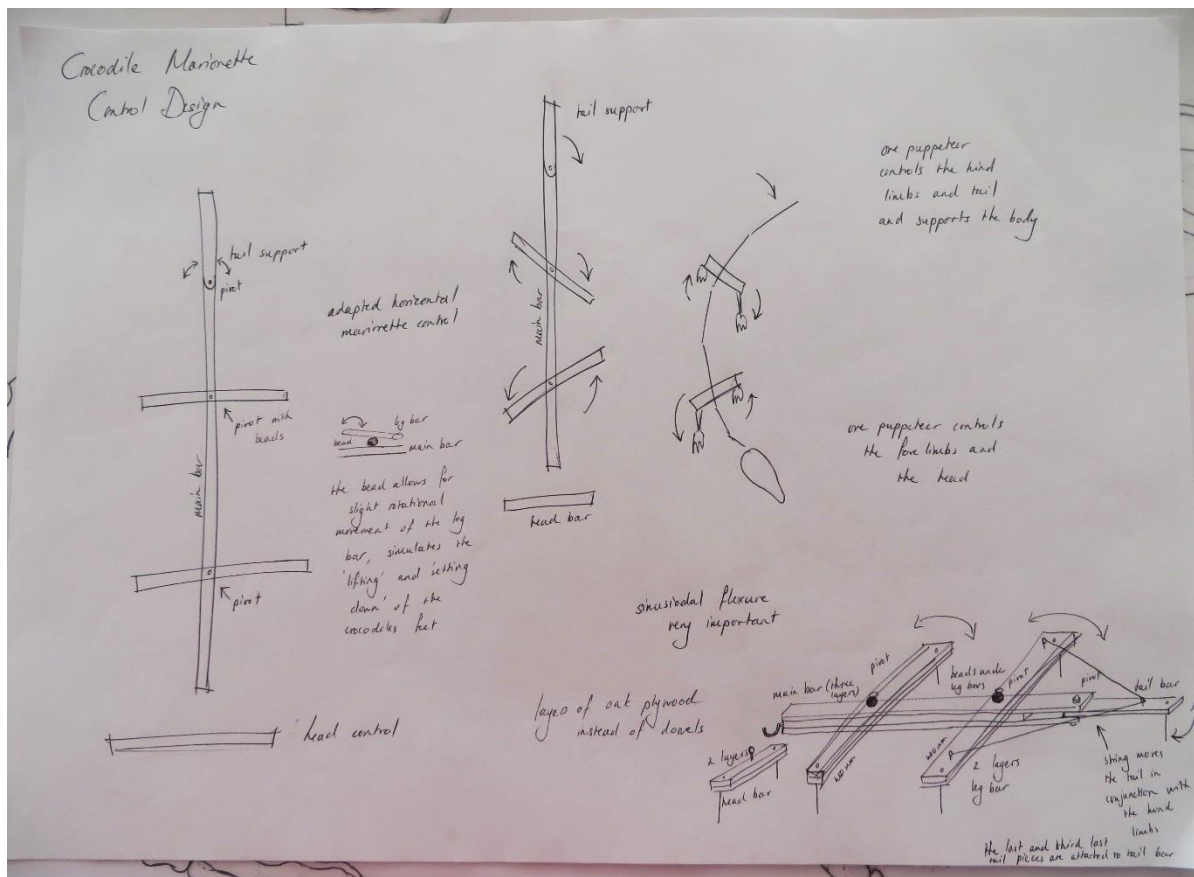 Crocodile Marionette
Control Design
tail support
pivot
adapted horizontal
marionette control
pivot with
beads
leg bar
bead
main bar
main bar
the bead allows for
slight rotational
movement of the leg
bar, simulates the
'lifting' and 'setting
down' of the
crocodiles feet
pivot
head control
tail support
main bar
head bar
one puppeteer
controls the hind
limbs and tail
and supports the body
one puppeteer controls
the fore limbs and
the head
sinusiodal flexure
very important
layes of oak plywood
instead of dowels
main bar (three
layers)
pivot
beads under
leg bars
pivot
pivot
tail bar
2 layers
head bar
400mm
400mm
2 layers
leg bar
string moves
the tail in
conjunction with
the hind
limbs
the last and third last
tail pieces are attached to tail bar